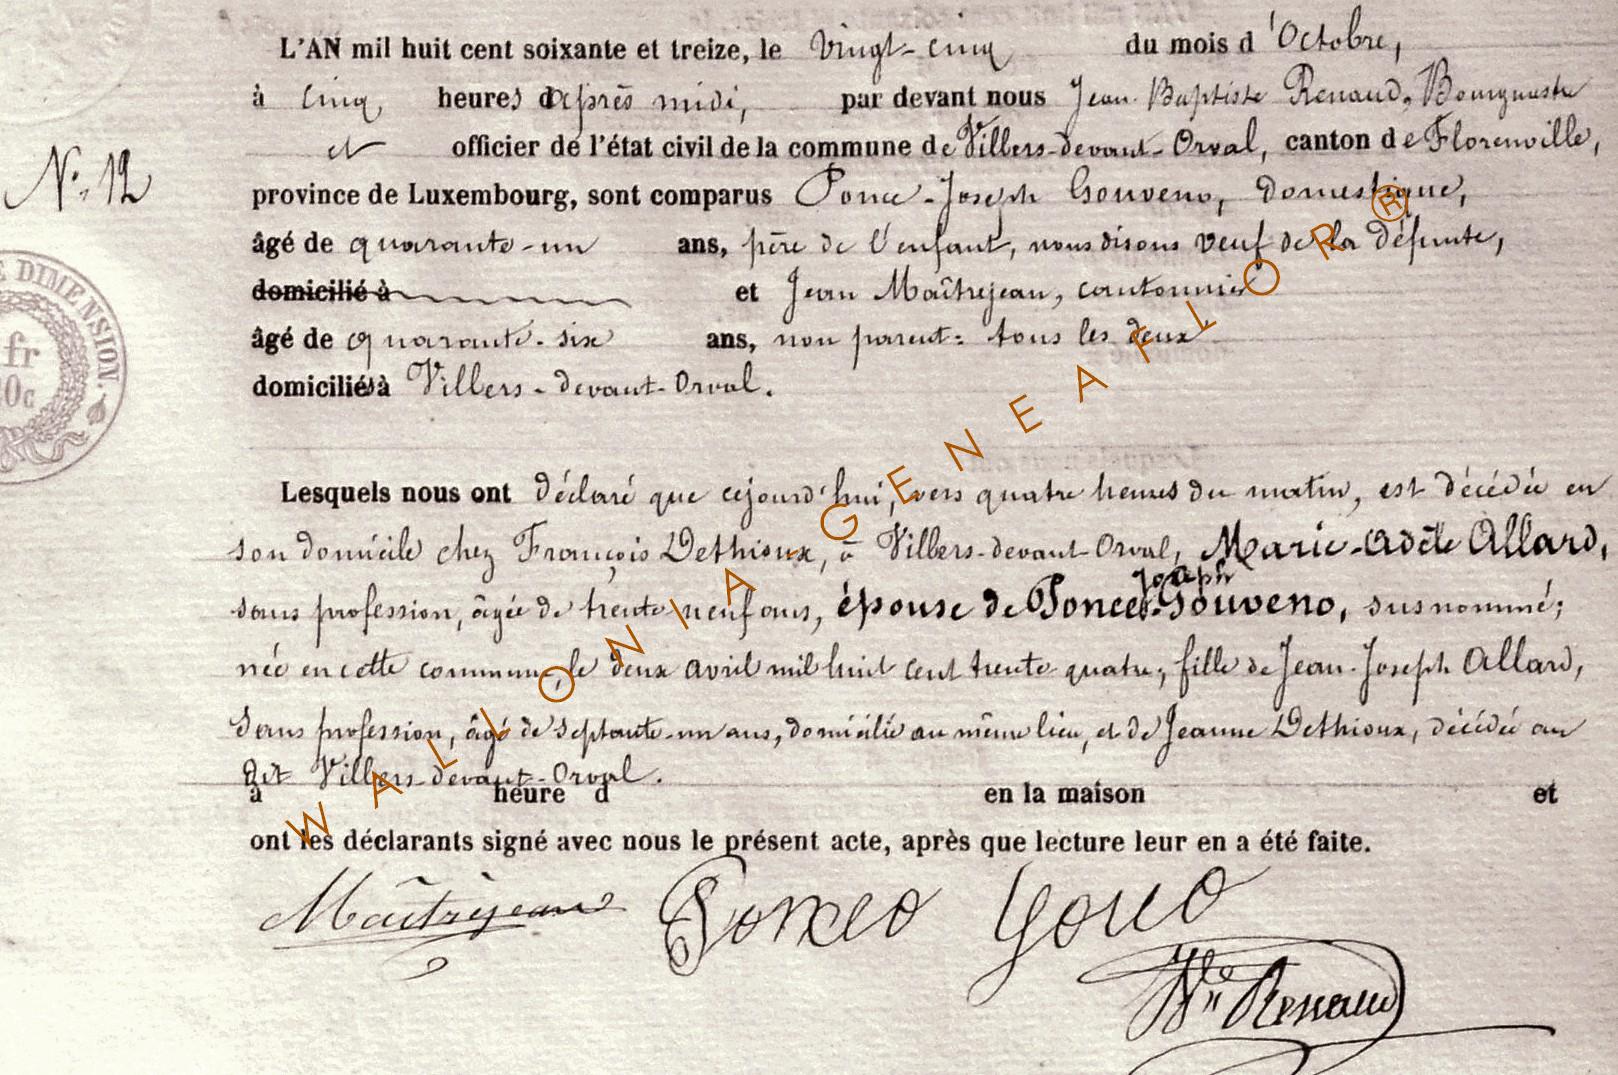 L'AN mil huit cent soixante et treize, le vingt-cinq du mois d'Octobre,
à cinq heures d'après midi, par devant nous Jean-Baptiste Renaud, Bourgmestre
et officier de l'état civil de la commune de Villers-devant-Orval, canton de Florenville,
N° 12
province de Luxembourg, sont comparus Ponce-Joseph Gouveno, domestique,
âgé de quarante-un ans, père de l'enfant, nous disons veuf de la défunte,
domicilié à et Jean Maîtrejean, cantonnier
âgé de quarante-six ans, non parent: tous les deux
domiciliés à Villers-devant-Orval.
E DIMENSION.
fr
0c
Lesquels nous ont déclaré que cejourd'hui, vers quatre heures du matin, est décédée en
son domicile chez François Dethioux, à Villers-devant-Orval, Marie-Adèle Allard,
sans profession, âgée de trente neuf ans, épouse de Ponce-Joseph Gouveno, susnommé;
née en cette commune, le deux avril mil huit cent trente quatre; fille de Jean-Joseph Allard,
sans profession, âgé de septante-un ans, domicilié au même lieu, et de Jeanne Dethioux, décédée au
dit Villers-devant-Orval.
à heure d en la maison et
ont les déclarants signé avec nous le présent acte, après que lecture leur en a été faite.
Maîtrejean Ponce Gouo
Renaud
WALLONIA-GENEAFLOR®